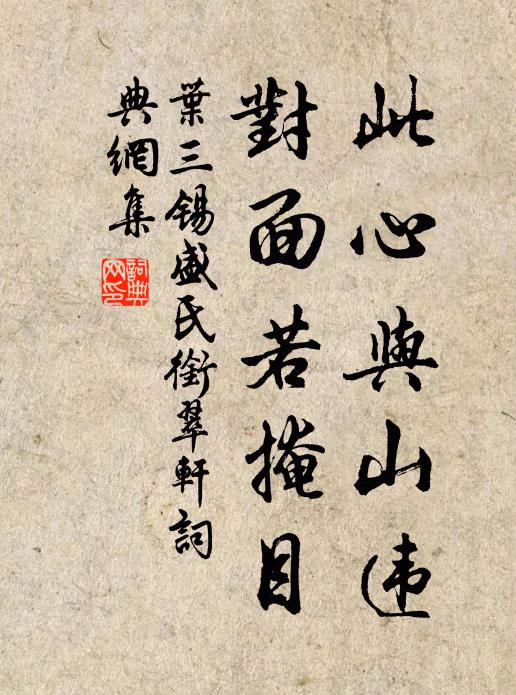 此心與山违
對面若掩目
葉三锡盛氏銜翠軒詞
典網集
詞典网印